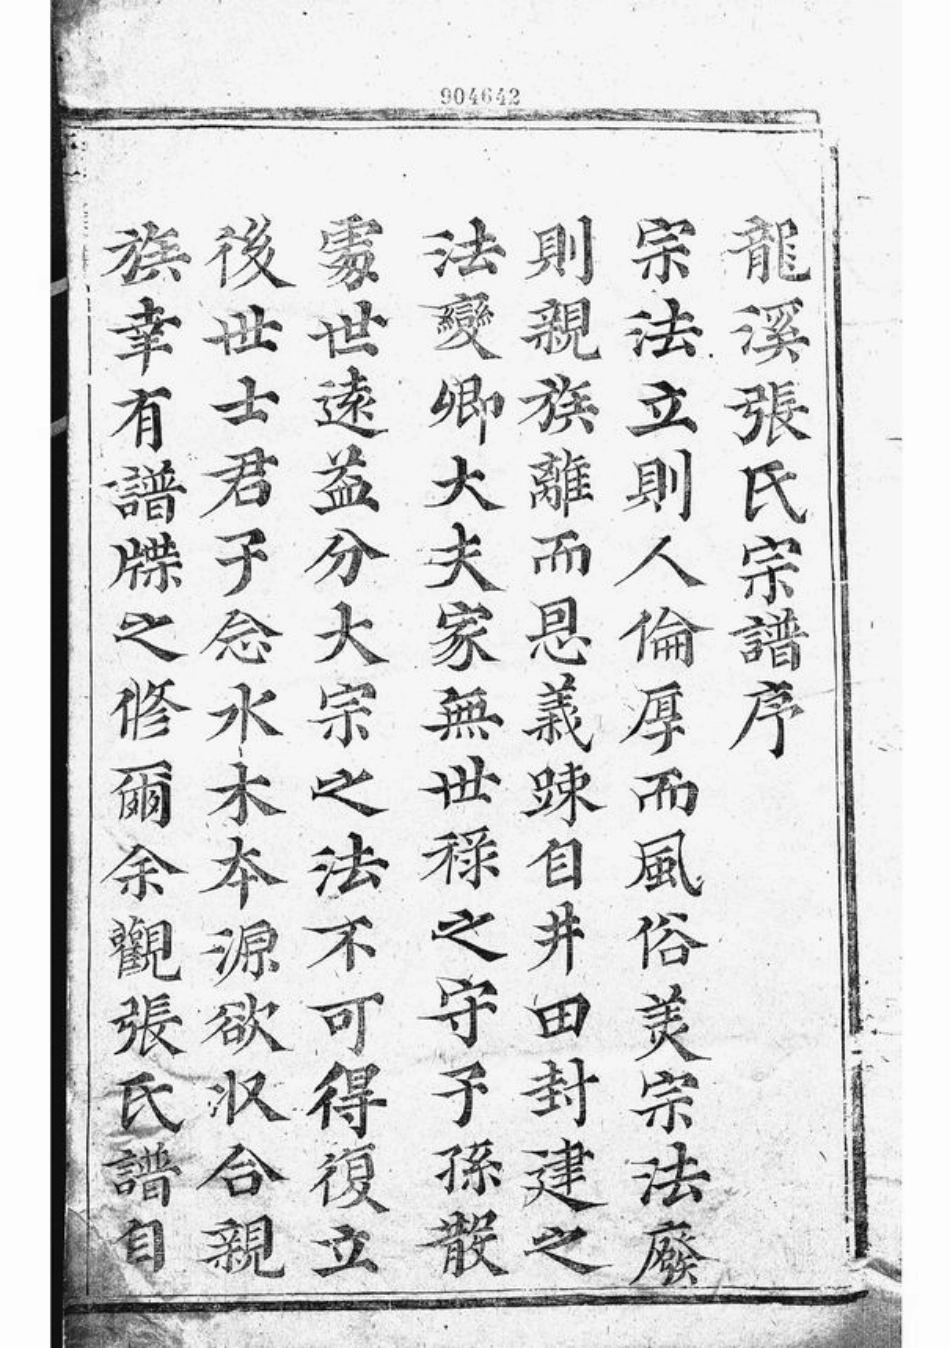 904642
龍溪張氏宗譜序
宗法立則人倫厚而風俗美宗法廢
則親族離而恩義踈自井田封建之
法變卿大夫家無世祿之守子孫散
處世遠益分大宗之法不可得復立
後世士君子念水木本源欲収合親
族幸有譜牒之修爾余觀張氏譜自